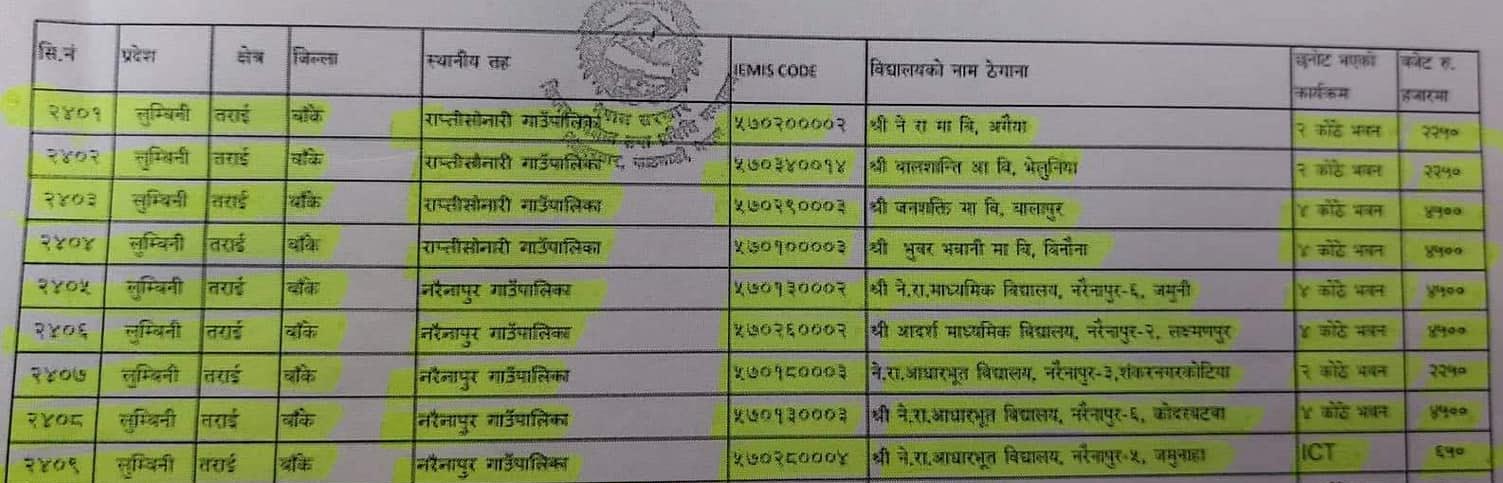 सि.नं प्रदेश क्षेत्र जिल्ला स्थानीय तह IEMIS CODE विद्यालयको नाम ठेगाना छनोट भएको कार्यक्रम बजेट रु. हजारमा
२४०१ लुम्बिनी तराई बाँके राप्तीसोनारी गाउँपालिका ५७०२००००२ श्री ने रा मा वि, अगैया २ कोठे भवन २२५०
२४०२ लुम्बिनी तराई बाँके राप्तीसोनारी गाउँपालिका ५७०३४००१४ श्री बालशान्ति आ वि, भेलुनिया २ कोठे भवन २२५०
२४०३ लुम्बिनी तराई बाँके राप्तीसोनारी गाउँपालिका ५७०२९०००३ श्री जनशक्ति मा वि, बालापुर ४ कोठे भवन ४५००
२४०४ लुम्बिनी तराई बाँके राप्तीसोनारी गाउँपालिका ५७०१००००३ श्री भुवर भवानी मा वि, बिनौना ४ कोठे भवन ४५००
२४०५ लुम्बिनी तराई बाँके नरैनापुर गाउँपालिका ५७०१३०००२ श्री ने.रा.माध्यमिक विद्यालय, नरैनापुर-६, जमुनी ४ कोठे भवन ४५००
२४०६ लुम्बिनी तराई बाँके नरैनापुर गाउँपालिका ५७०२६०००२ श्री आदर्श माध्यमिक विद्यालय, नरैनापुर-२, लक्ष्मणपुर ४ कोठे भवन ४५००
२४०७ लुम्बिनी तराई बाँके नरैनापुर गाउँपालिका ५७०१८०००३ ने.रा.आधारभूत विद्यालय, नरैनापुर-३,शंकरनगरकोटिया २ कोठे भवन २२५०
२४०८ लुम्बिनी तराई बाँके नरैनापुर गाउँपालिका ५७०१३०००३ श्री ने.रा.आधारभूत विद्यालय, नरैनापुर-६, कोदरघटवा ४ कोठे भवन ४५००
२४०९ लुम्बिनी तराई बाँके नरैनापुर गाउँपालिका ५७०२८०००४ श्री ने.रा.आधारभूत विद्यालय, नरैनापुर-५, जमुनाहा ICT ६५०